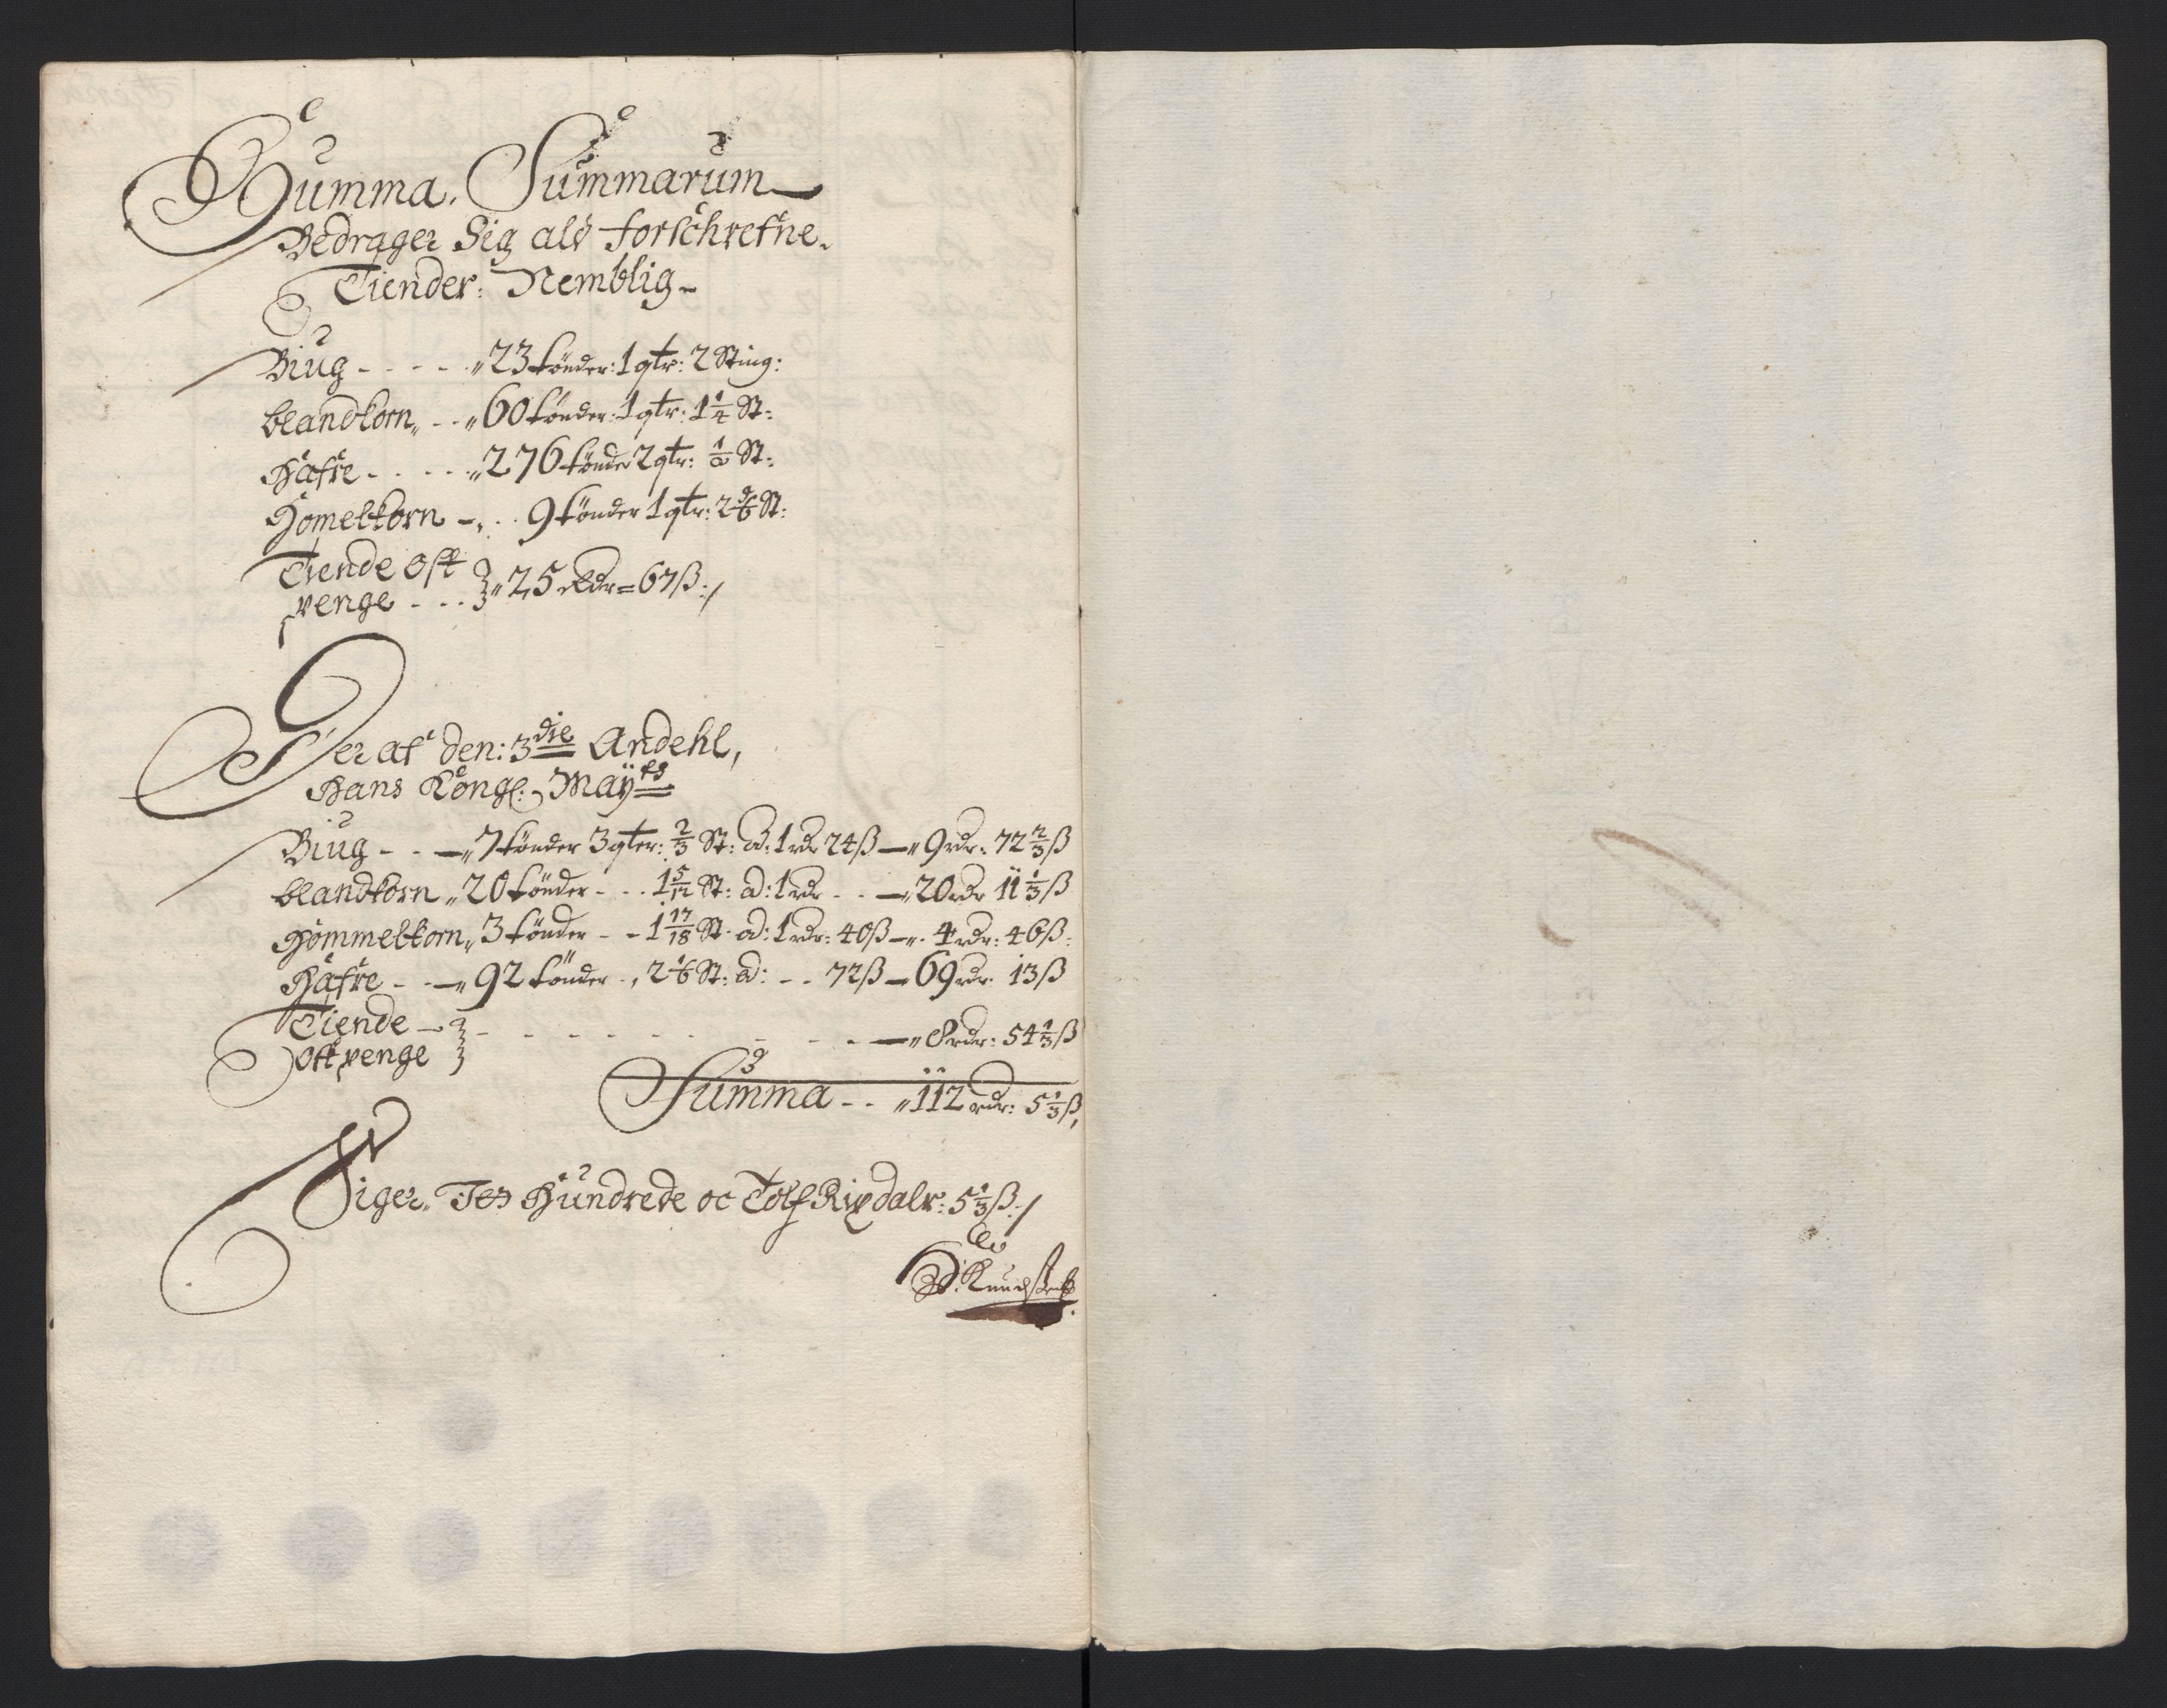 Summa, Summarum
Bedrager Sig als forschrefne.
Tiender: Nemblig-
Biug - - - - „23 tönder: 1 qtr: 2 Sting:
blandkorn„ - - „60 tönder: 1 qtr: 1 1/4 St:
Hafre - - - - „276 tönder 2 qtr: 1/2 St:
Homelkorn - „ - 9 tönder 1 qtr: 2 5/6 St:
Tiende Ost
penge - - - } „25 rdr = 67 ß:/
Her af den: 3die Andehl,
Hans Kongl: Mayts
Biug - - - „7 tönder 3 qter: 2/3 St: ad: 1 rdr 24 ß - „9 rdr: 72 2/3 ß
blandkorn „20 tönder - - 1 5/12 St: ad: 1 rdr - - - „20 rdr 11 1/3 ß
Hommelkorn„ 3 tönder - - 1 17/18 St. ad: 1 rdr: 40 ß - „ 4 rdr: 46 ß:
Hafre - - - „92 tönder - , 2 1/6 St: ad: - - 72 ß - 69 rdr: 13 ß
Tiende -
Ost penge } - - - - - - - - - „8 rdr: 54 1/3 ß
Summa - - „112 rdr: 5 1/3 ß,
Siger. Jet Hundrede oc Tolf Rixdalr: 5 1/3 ß:/